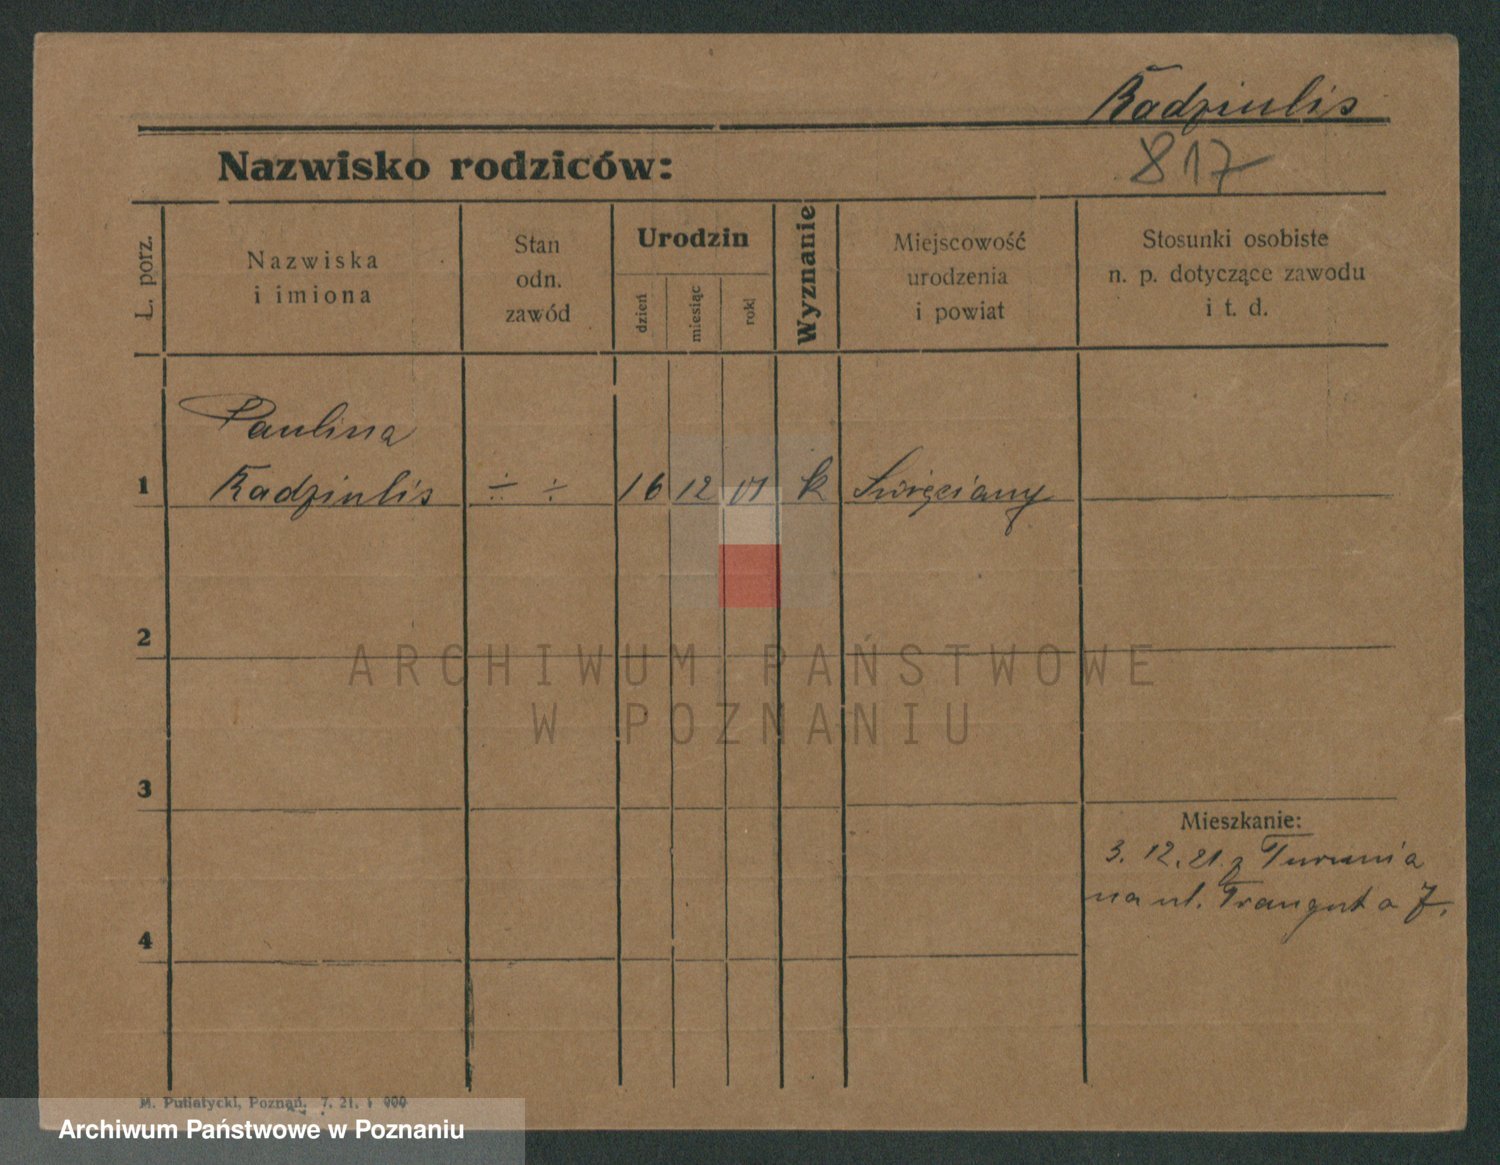 Radziulis
Nazwisko rodziców:
817
L. porz.
Nazwiska
i imiona
Stan
odn.
zawód
Urodzin
dzień
miesiąc
rok
Wyznanie
Miejscowość
urodzenia
i powiat
Stosunki osobiste
n. p. dotyczące zawodu
i t. d.
Paulina
1 Radziulis ÷ ÷ 16 12 01 k Święciany
2
ARCHIWUM PAŃSTWOWE
W POZNANIU
3
Mieszkanie:
3. 12. 21. z Torunia
na ul. Trauguta 7.
4
M. Putiatycki, Poznań. 7. 21. 000
Archiwum Państwowe w Poznaniu